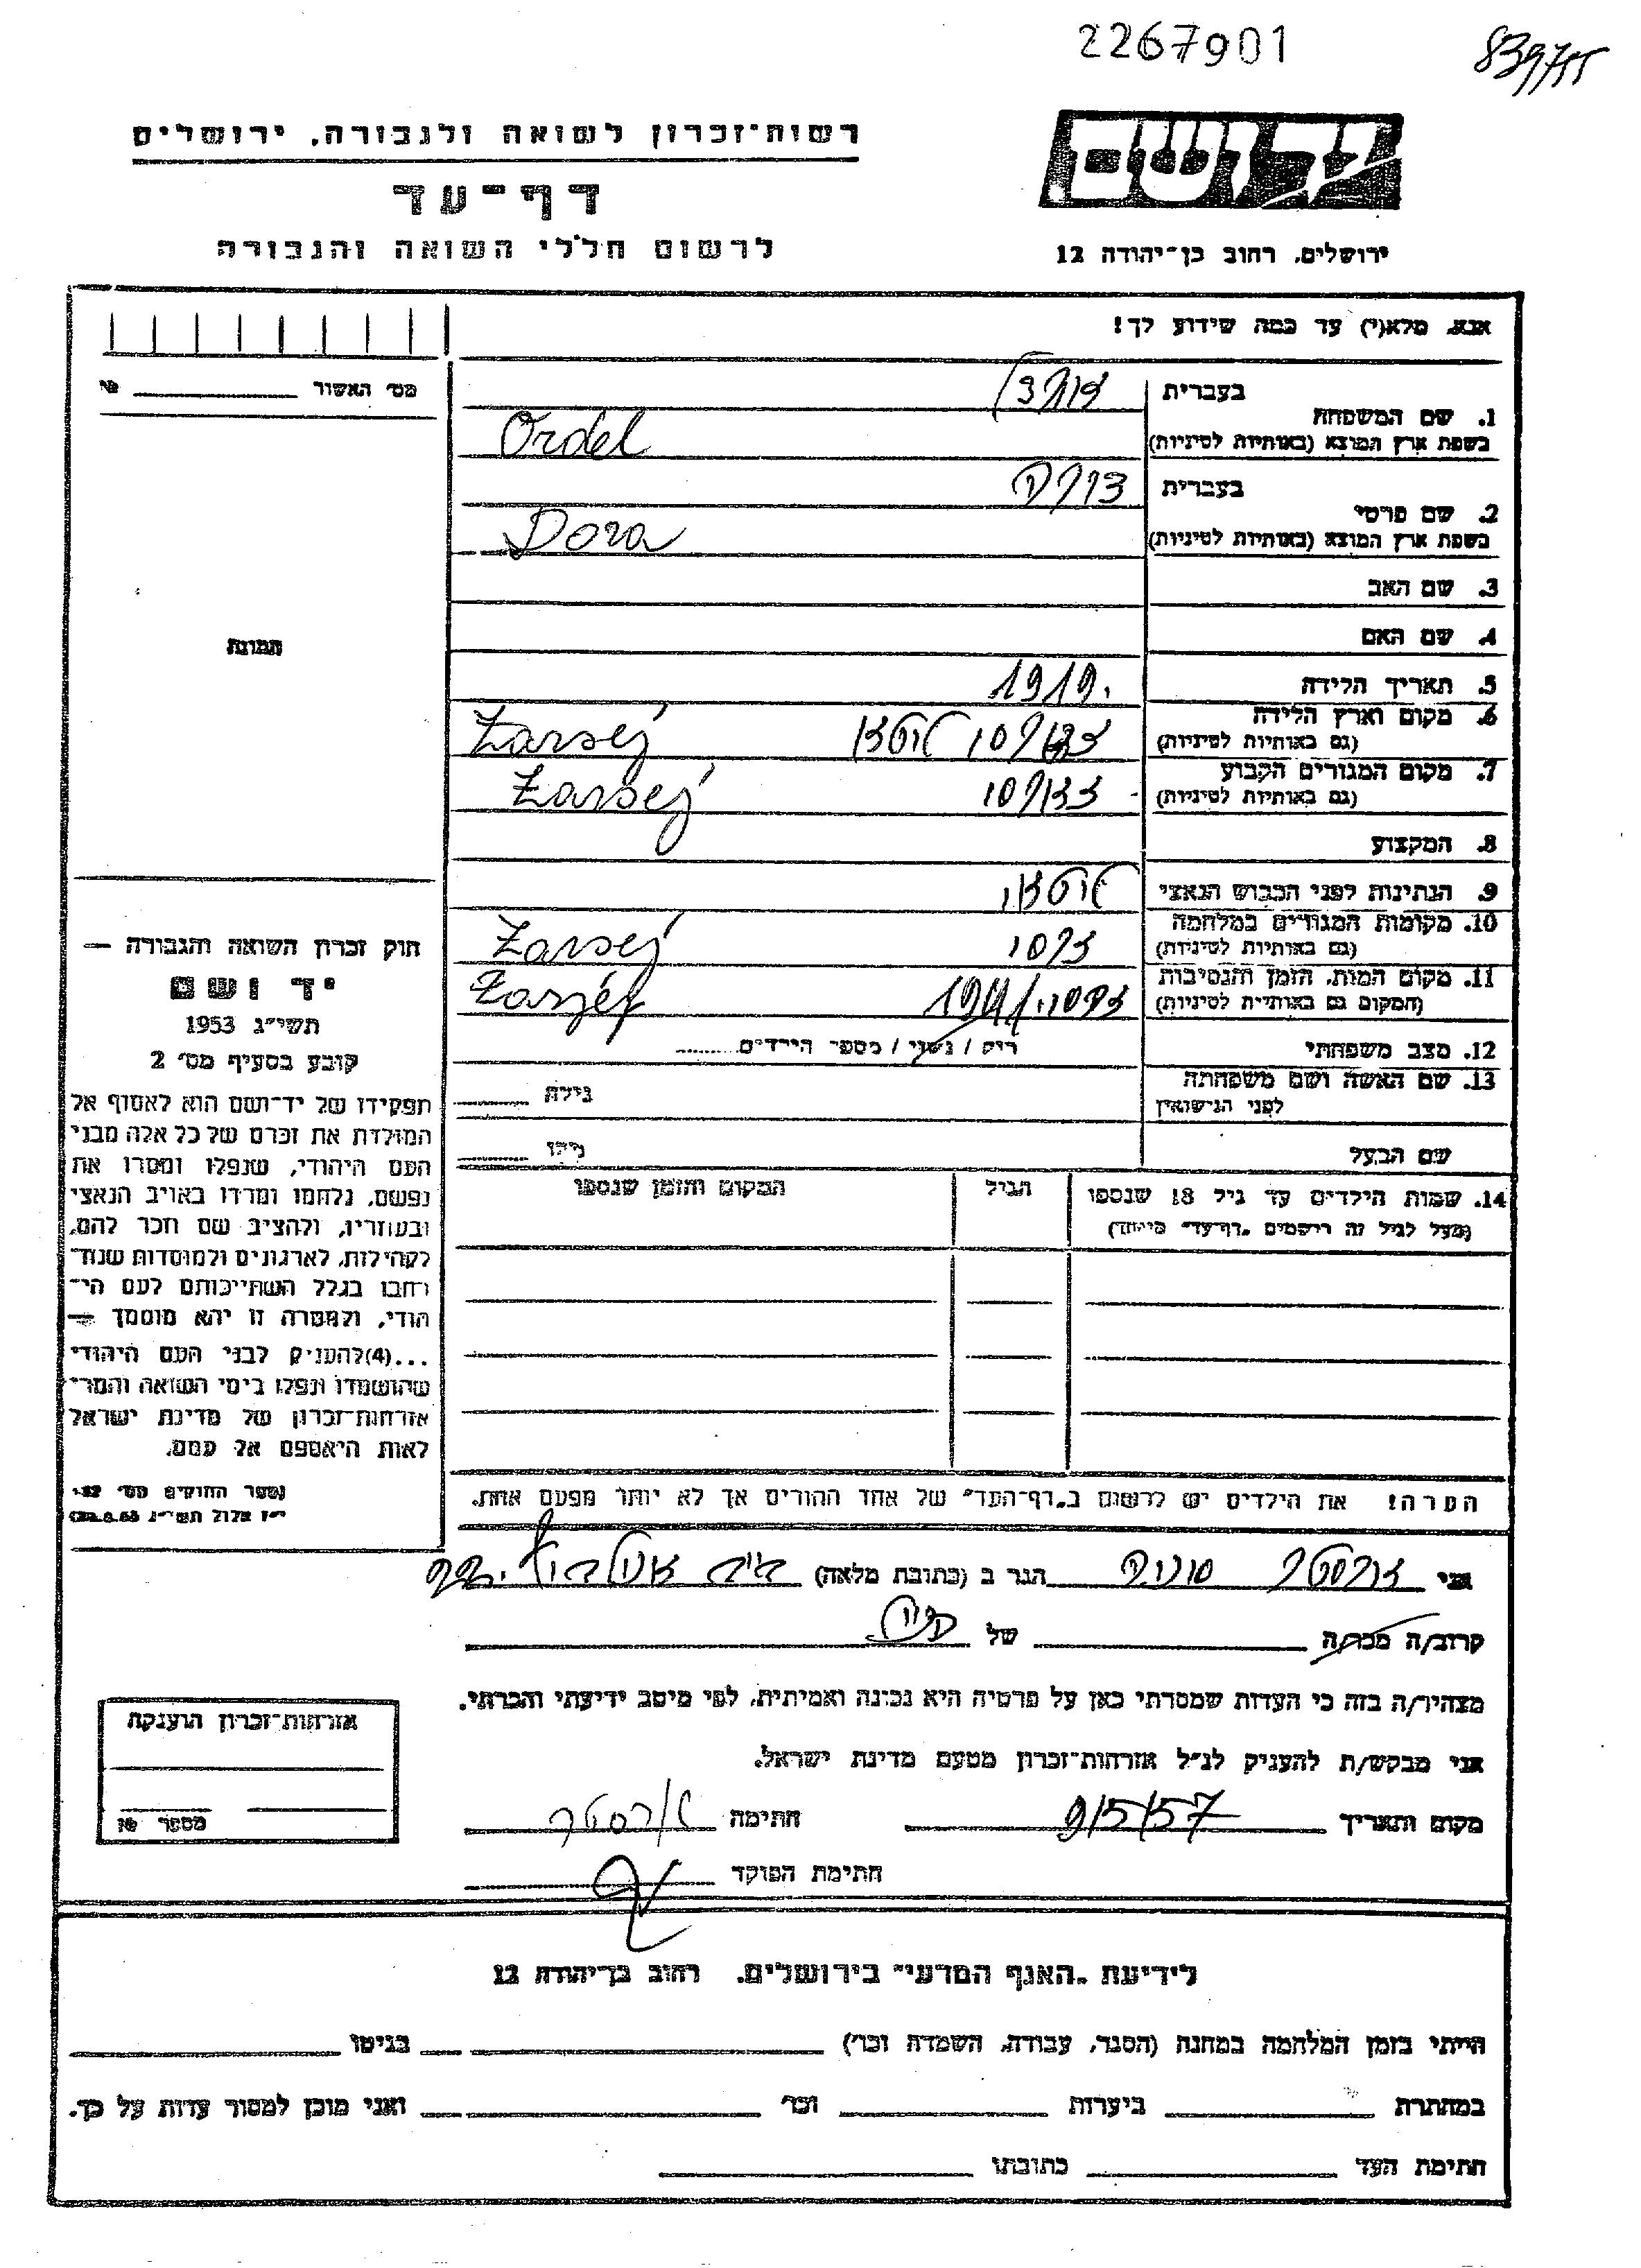 2267901
839755
רשות־זכרון לשואה ולגבורה, ירושלים
דף־עד
לרשום חללי השואה והגבורה
יד ושם
ירושלים, רחוב בן־יהודה 12
אנא, מלא(י) עד כמה שידוע לך!
מס׳ האשור №
1. שם המשפחה
בעברית
בשפת ארץ המוצא (באותיות לטיניות) Ordel
2. שם פרטי
בעברית דורה
בשפת ארץ המוצא (באותיות לטיניות) Dora
3. שם האב
4. שם האם
5. תאריך הלידה 1919.
6. מקום וארץ הלידה
(גם באותיות לטיניות) Zarsej
7. מקום המגורים הקבוע
(גם באותיות לטיניות) Zarsej
8. המקצוע
9. הנתינות לפני הכבוש הנאצי
10. מקומות המגורים במלחמה
(גם באותיות לטיניות) Zarsej
11. מקום המות, הזמן והנסיבות
(המקום גם באותיות לטיניות) 1941
12. מצב משפחתי רוק / נשוי / מספר הילדים
13. שם האשה ושם משפחתה
לפני הנישואין גילה
שם הבעל גילו
14. שמות הילדים עד גיל 18 שנספו הגיל המקום והזמן שנספו
(מעל לגיל זה רושמים „דף־עד״ מיוחד)
הערה! את הילדים יש לרשום ב„דף־העד״ של אחד ההורים אך לא יותר מפעם אחת.
תמונה
חוק זכרון השואה והגבורה —
יד ושם
תשי״ג 1953
קובע בסעיף מס׳ 2
תפקידו של יד־ושם הוא לאסוף אל
המולדת את זכרם של כל אלה מבני
העם היהודי, שנפלו ומסרו את
נפשם, נלחמו ומרדו באויב הנאצי
ובעוזריו, ולהציב שם וזכר להם,
לקהילות, לארגונים ולמוסדות שנח־
רבו בגלל השתייכותם לעם הי־
הודי, ולמטרה זו יהא מוסמך —
...(4)להעניק לבני העם היהודי
שהושמדו ונפלו בימי השואה והמרי
אזרחות־זכרון של מדינת ישראל
לאות היאספם אל עמם.
אני הגר ב (כתובת מלאה)
קרוב/ה מכר/ה של
מצהיר/ה בזה כי העדות שמסרתי כאן על פרטיה היא נכונה ואמיתית, לפי מיטב ידיעתי והכרתי.
אני מבקש/ת להעניק לנ״ל אזרחות־זכרון מטעם מדינת ישראל.
מקום ותאריך 9/5/57 חתימה
חתימת הפוקד
אזרחות־זכרון הוענקה
מספר №
לידיעת „האגף המדעי״ בירושלים, רחוב בן־יהודה 12
הייתי בזמן המלחמה במחנה (הסגר, עבודה, השמדה וכו׳) בגיטו
במחתרת ביערות וכו׳ ואני מוכן למסור עדות על כך.
חתימת העד כתובתו